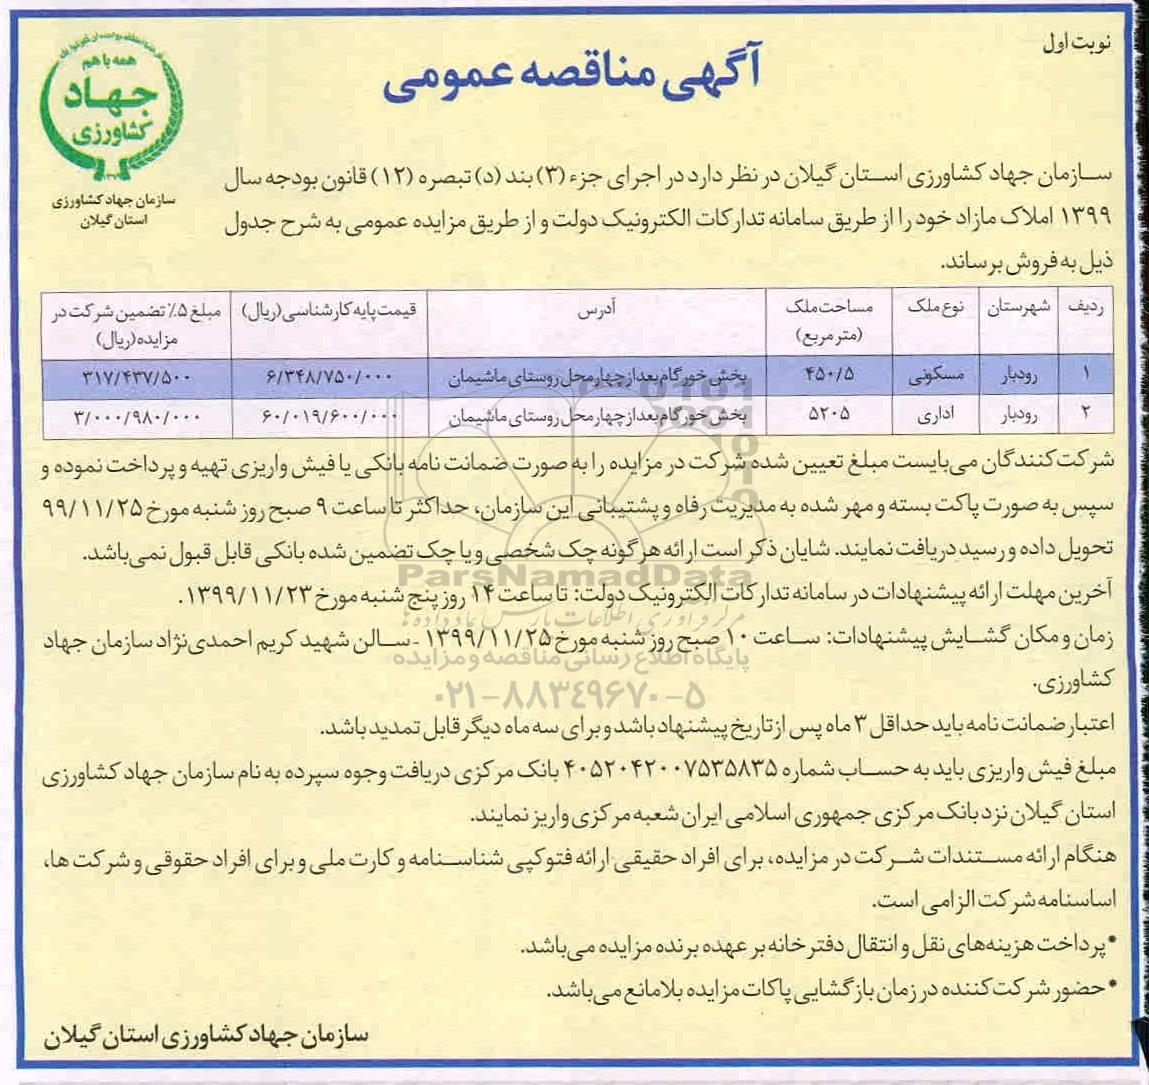 نوبت اول
آگهی مناقصه عمومی
همه با هم
جهاد
کشاورزی
سازمان جهاد کشاورزی
استان گیلان
سازمان جهاد کشاورزی استان گیلان در نظر دارد در اجرای جزء (۳) بند (د) تبصره (۱۲) قانون بودجه سال
۱۳۹۹ املاک مازاد خود را از طریق سامانه تدارکات الکترونیک دولت و از طریق مزایده عمومی به شرح جدول
ذیل به فروش برساند.
ردیف شهرستان نوع ملک مساحت ملک (متر مربع) آدرس قیمت پایه کارشناسی (ریال) مبلغ ۵٪ تضمین شرکت در مزایده (ریال)
۱ رودبار مسکونی ۴۵۰/۵ بخش خورگام بعد از چهار محل روستای ماشیمان ۶/۳۴۸/۷۵۰/۰۰۰ ۳۱۷/۴۳۷/۵۰۰
۲ رودبار اداری ۵۲۰۵ بخش خورگام بعد از چهار محل روستای ماشیمان ۶۰/۰۱۹/۶۰۰/۰۰۰ ۳/۰۰۰/۹۸۰/۰۰۰
شرکت کنندگان می‌بایست مبلغ تعیین شده شرکت در مزایده را به صورت ضمانت نامه بانکی یا فیش واریزی تهیه و پرداخت نموده و
سپس به صورت پاکت بسته و مهر شده به مدیریت رفاه و پشتیبانی این سازمان، حداکثر تا ساعت ۹ صبح روز شنبه مورخ ۹۹/۱۱/۲۵
تحویل داده و رسید دریافت نمایند. شایان ذکر است ارائه هرگونه چک شخصی و یا چک تضمین شده بانکی قابل قبول نمی‌باشد.
آخرین مهلت ارائه پیشنهادات در سامانه تدارکات الکترونیک دولت: تا ساعت ۱۴ روز پنج شنبه مورخ ۱۳۹۹/۱۱/۲۳.
زمان و مکان گشایش پیشنهادات: ساعت ۱۰ صبح روز شنبه مورخ ۱۳۹۹/۱۱/۲۵ - سالن شهید کریم احمدی‌نژاد سازمان جهاد
کشاورزی.
اعتبار ضمانت نامه باید حداقل ۳ ماه پس از تاریخ پیشنهاد باشد و برای سه ماه دیگر قابل تمدید باشد.
مبلغ فیش واریزی باید به حساب شماره ۴۰۵۲۰۴۲۰۰۷۵۳۵۸۳۵ بانک مرکزی دریافت وجوه سپرده به نام سازمان جهاد کشاورزی
استان گیلان نزد بانک مرکزی جمهوری اسلامی ایران شعبه مرکزی واریز نمایند.
هنگام ارائه مستندات شرکت در مزایده، برای افراد حقیقی ارائه فتوکپی شناسنامه و کارت ملی و برای افراد حقوقی و شرکت ها،
اساسنامه شرکت الزامی است.
*پرداخت هزینه‌های نقل و انتقال دفترخانه بر عهده برنده مزایده می‌باشد.
*حضور شرکت کننده در زمان بازگشایی پاکات مزایده بلامانع می‌باشد.
سازمان جهاد کشاورزی استان گیلان
ParsNamadData
مرکز فرآوری اطلاعات پارس نماد داده‌ها
پایگاه اطلاع رسانی مناقصه و مزایده
۰۲۱-۸۸۳۴۹۶۷۰-۵